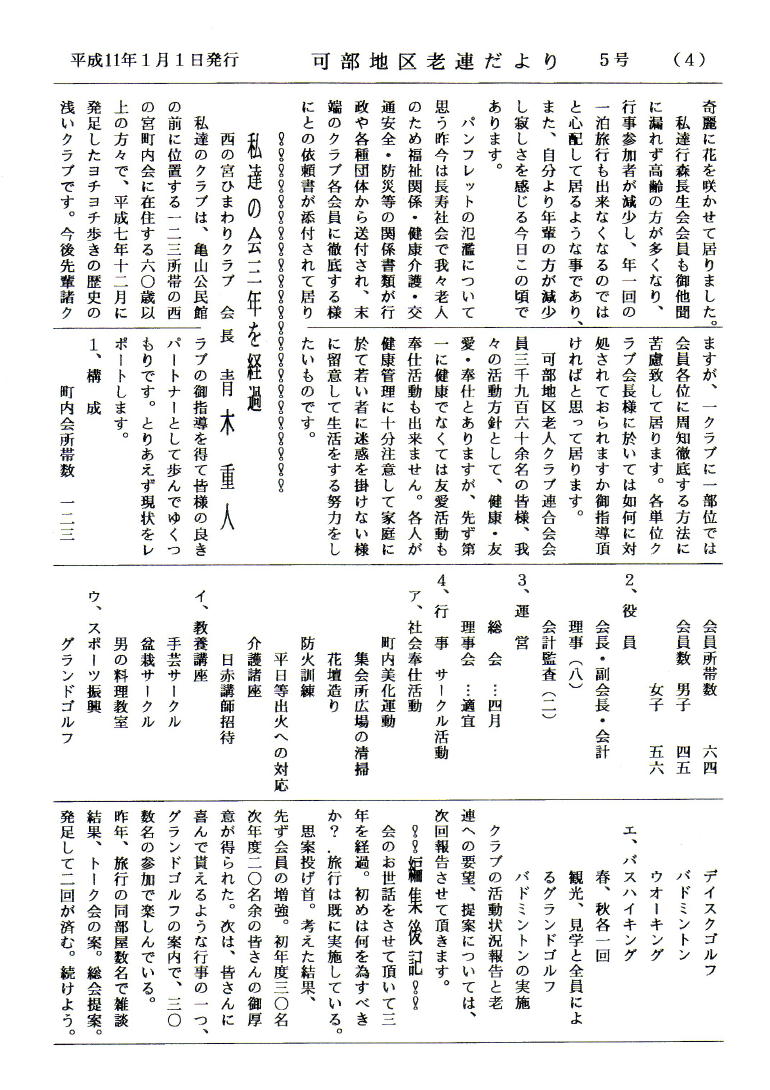 平成11年1月1日発行　可部地区老連だより　5号　(4)
奇麗に花を咲かせて居りました。
私達行森長生会会員も御他聞
に漏れず高齢の方が多くなり、
行事参加者が減少し、年一回の
一泊旅行も出来なくなるのでは
と心配して居るような事であり、
また、自分より年輩の方が減少
し寂しさを感じる今日この頃で
あります。
パンフレットの氾濫について
思う昨今は長寿社会で我々老人
のため福祉関係・健康介護・交
通安全・防災等の関係書類が行
政や各種団体から送付され、末
端のクラブ各会員に徹底する様
にとの依頼書が添付されて居り
ますが、一クラブに一部位では
会員各位に周知徹底する方法に
苦慮致して居ります。各単位ク
ラブ会長様に於いては如何に対
処されておられますか御指導頂
ければと思って居ります。
可部地区老人クラブ連合会会
員三千九百六十余名の皆様、我
々の活動方針として、健康・友
愛・奉仕とありますが、先ず第
一に健康でなくては友愛活動も
奉仕活動も出来ません。各人が
健康管理に十分注意して家庭に
於て若い者に迷惑を掛けない様
に留意して生活をする努力をし
たいものです。
私達の会三年を経過
西の宮ひまわりクラブ　会長　青木重人
私達のクラブは、亀山公民館
の前に位置する一二三所帯の西
の宮町内会に在住する六〇歳以
上の方々で、平成七年十二月に
発足したヨチヨチ歩きの歴史の
浅いクラブです。今後先輩諸ク
ラブの御指導を得て皆様の良き
パートナーとして歩んでゆくつ
もりです。とりあえず現状をレ
ポートします。
1、構　成
町内会所帯数　一二三
会員所帯数　六四
会員数　男子　四五
女子　五六
2、役　員
会長・副会長・会計
理事（八）
会計監査（二）
3、運　営
総　会　…四月
理事会　…適宜
4、行　事　サークル活動
ア、社会奉仕活動
町内美化運動
集会所広場の清掃
花壇造り
防火訓練
平日等出火への対応
介護諸座
日赤講師招待
イ、教養講座
手芸サークル
盆栽サークル
男の料理教室
ウ、スポーツ振興
グランドゴルフ
デイスクゴルフ
バドミントン
ウオーキング
エ、バスハイキング
春、秋各一回
観光、見学と全員によ
るグランドゴルフ
バドミントンの実施
クラブの活動状況報告と老
連への要望、提案については、
次回報告させて頂きます。
編集後記
会のお世話をさせて頂いて三
年を経過。初めは何を為すべき
か？.旅行は既に実施している。
思案投げ首。考えた結果、
先ず会員の増強。初年度三〇名
次年度二〇名余の皆さんの御厚
意が得られた。次は、皆さんに
喜んで貰えるような行事の一つ、
グランドゴルフの案内で、三〇
数名の参加で楽しんでいる。
昨年、旅行の同部屋数名で雑談
結果、トーク会の案。総会提案。
発足して二回が済む。続けよう。